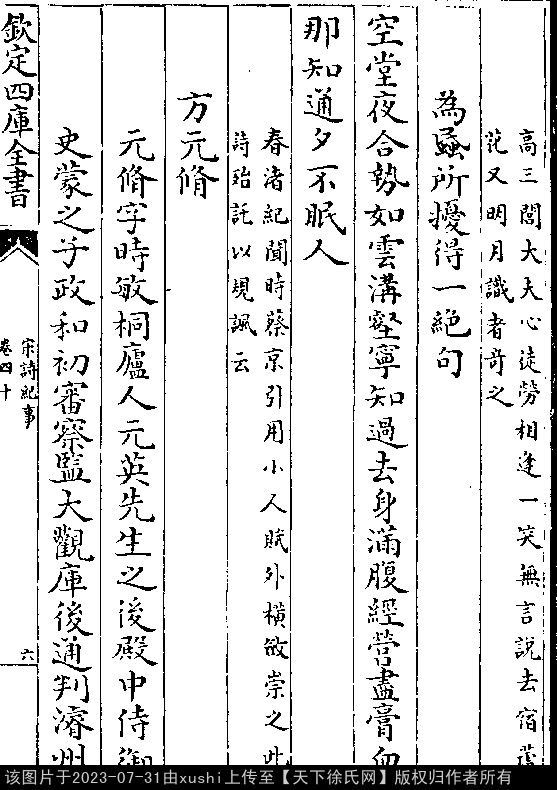 高三閭大夫心徒勞相逢一笑無言說去宿蘆
花又明月識者奇之
為蝨所擾得一絕句
空堂夜合勢如雲溝壑寧知過去身滿腹經營盡膏血
那知通夕不眠人
春渚紀聞時蔡京引用小人賦外橫斂崇之此
詩殆託以規諷云
方元脩
元脩字時敏桐廬人元英先生之後殿中侍御
史蒙之子政和初審察監大觀庫後通判濬州
欽定四庫全書
宋詩紀事
卷四十
六
该图片于2023-07-31由xushi上传至【天下徐氏网】版权归作者所有